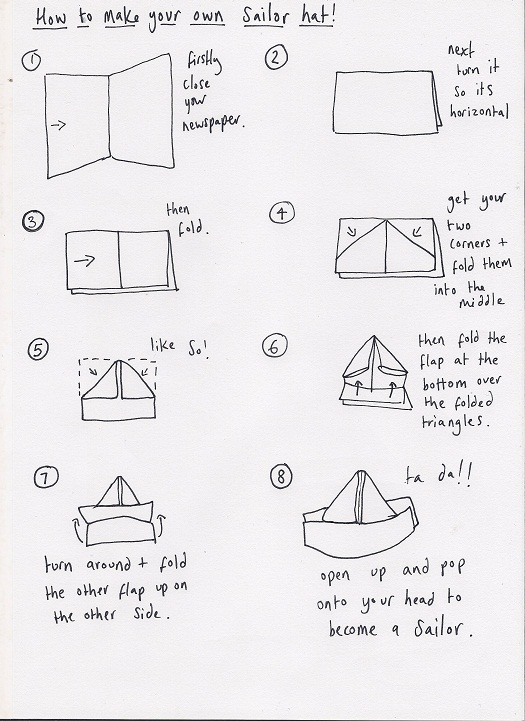 How to make your own Sailor hat!
1
firstly
close
your
newspaper.
2
next
turn it
so its
horizontal
3
then
fold.
4
get your
two
corners +
fold them
into the
middle
5
like So!
6
then fold the
flap at the
bottom over
the folded
triangles.
7
turn around + fold
the other flap up on
the other side.
8
ta da!!
open up and pop
onto your head to
become a Sailor.